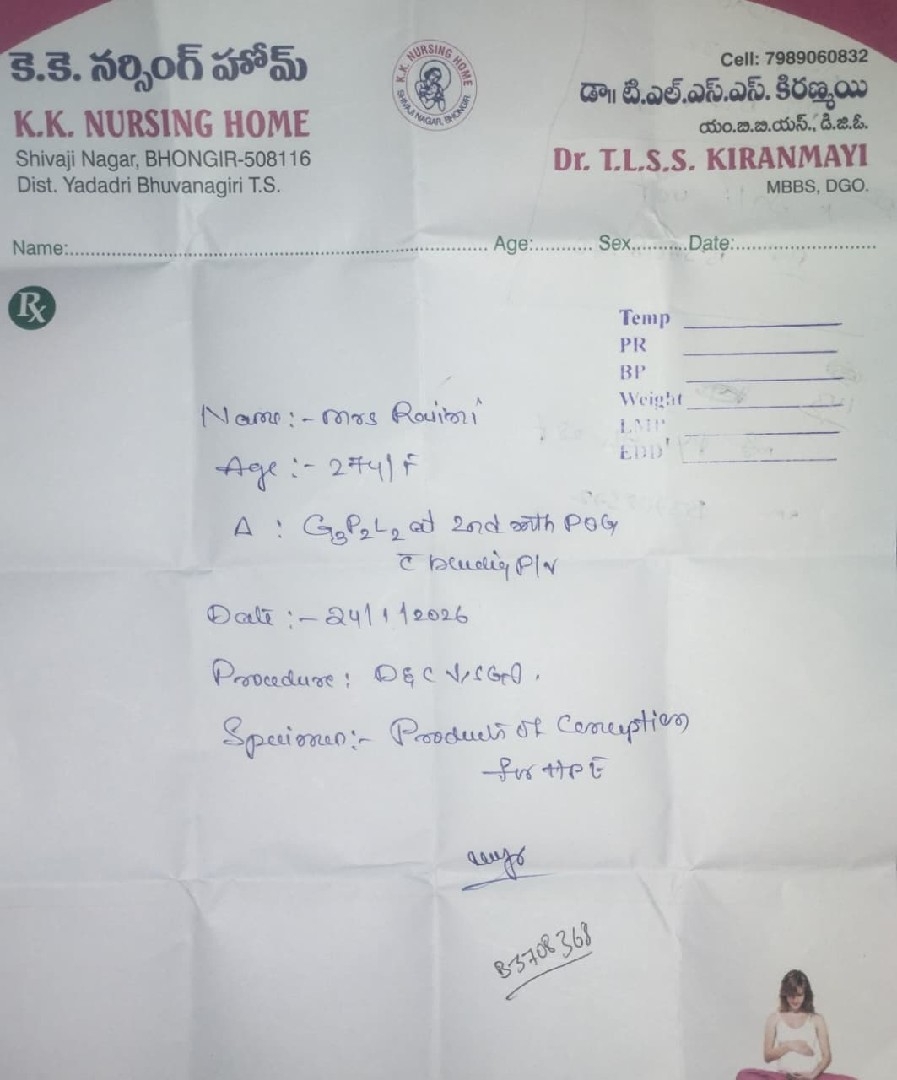 కె.కె. నర్సింగ్ హోమ్
K.K. NURSING HOME
Shivaji Nagar, BHONGIR-508116
Dist. Yadadri Bhuvanagiri T.S.
K.K. NURSING HOME
SHIVAJI NAGAR, BHONGIR
Cell: 7989060832
డా॥ టి.ఎల్.ఎస్.ఎస్. కిరణ్మయి
యం.బి.బి.యస్., డి.జి.ఓ.
Dr. T.L.S.S. KIRANMAYI
MBBS, DGO.
Name:.......... Age:.......... Sex..........Date:..........
Rx
Temp
PR
BP
Weight
LMP
EDD
Name :- Mrs
Age :- 27y/F
Δ : G3P2L2 at 2nd POG
c̄ P/V
Date :- 24/1/2026
Procedure : D&C
Specimen:- Products of Conception
for HPE
B-3708368